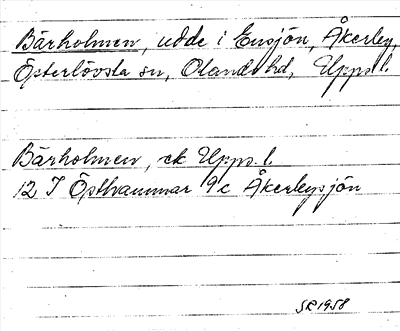 Bärholmen, udde i Ensjön, Åkerby,
Österlövsta sn, Olands hd, Upps.l.
Bärholmen, ek Upps. l.
12 I Östhammar 9 c Åkerbysjön
SR 1958